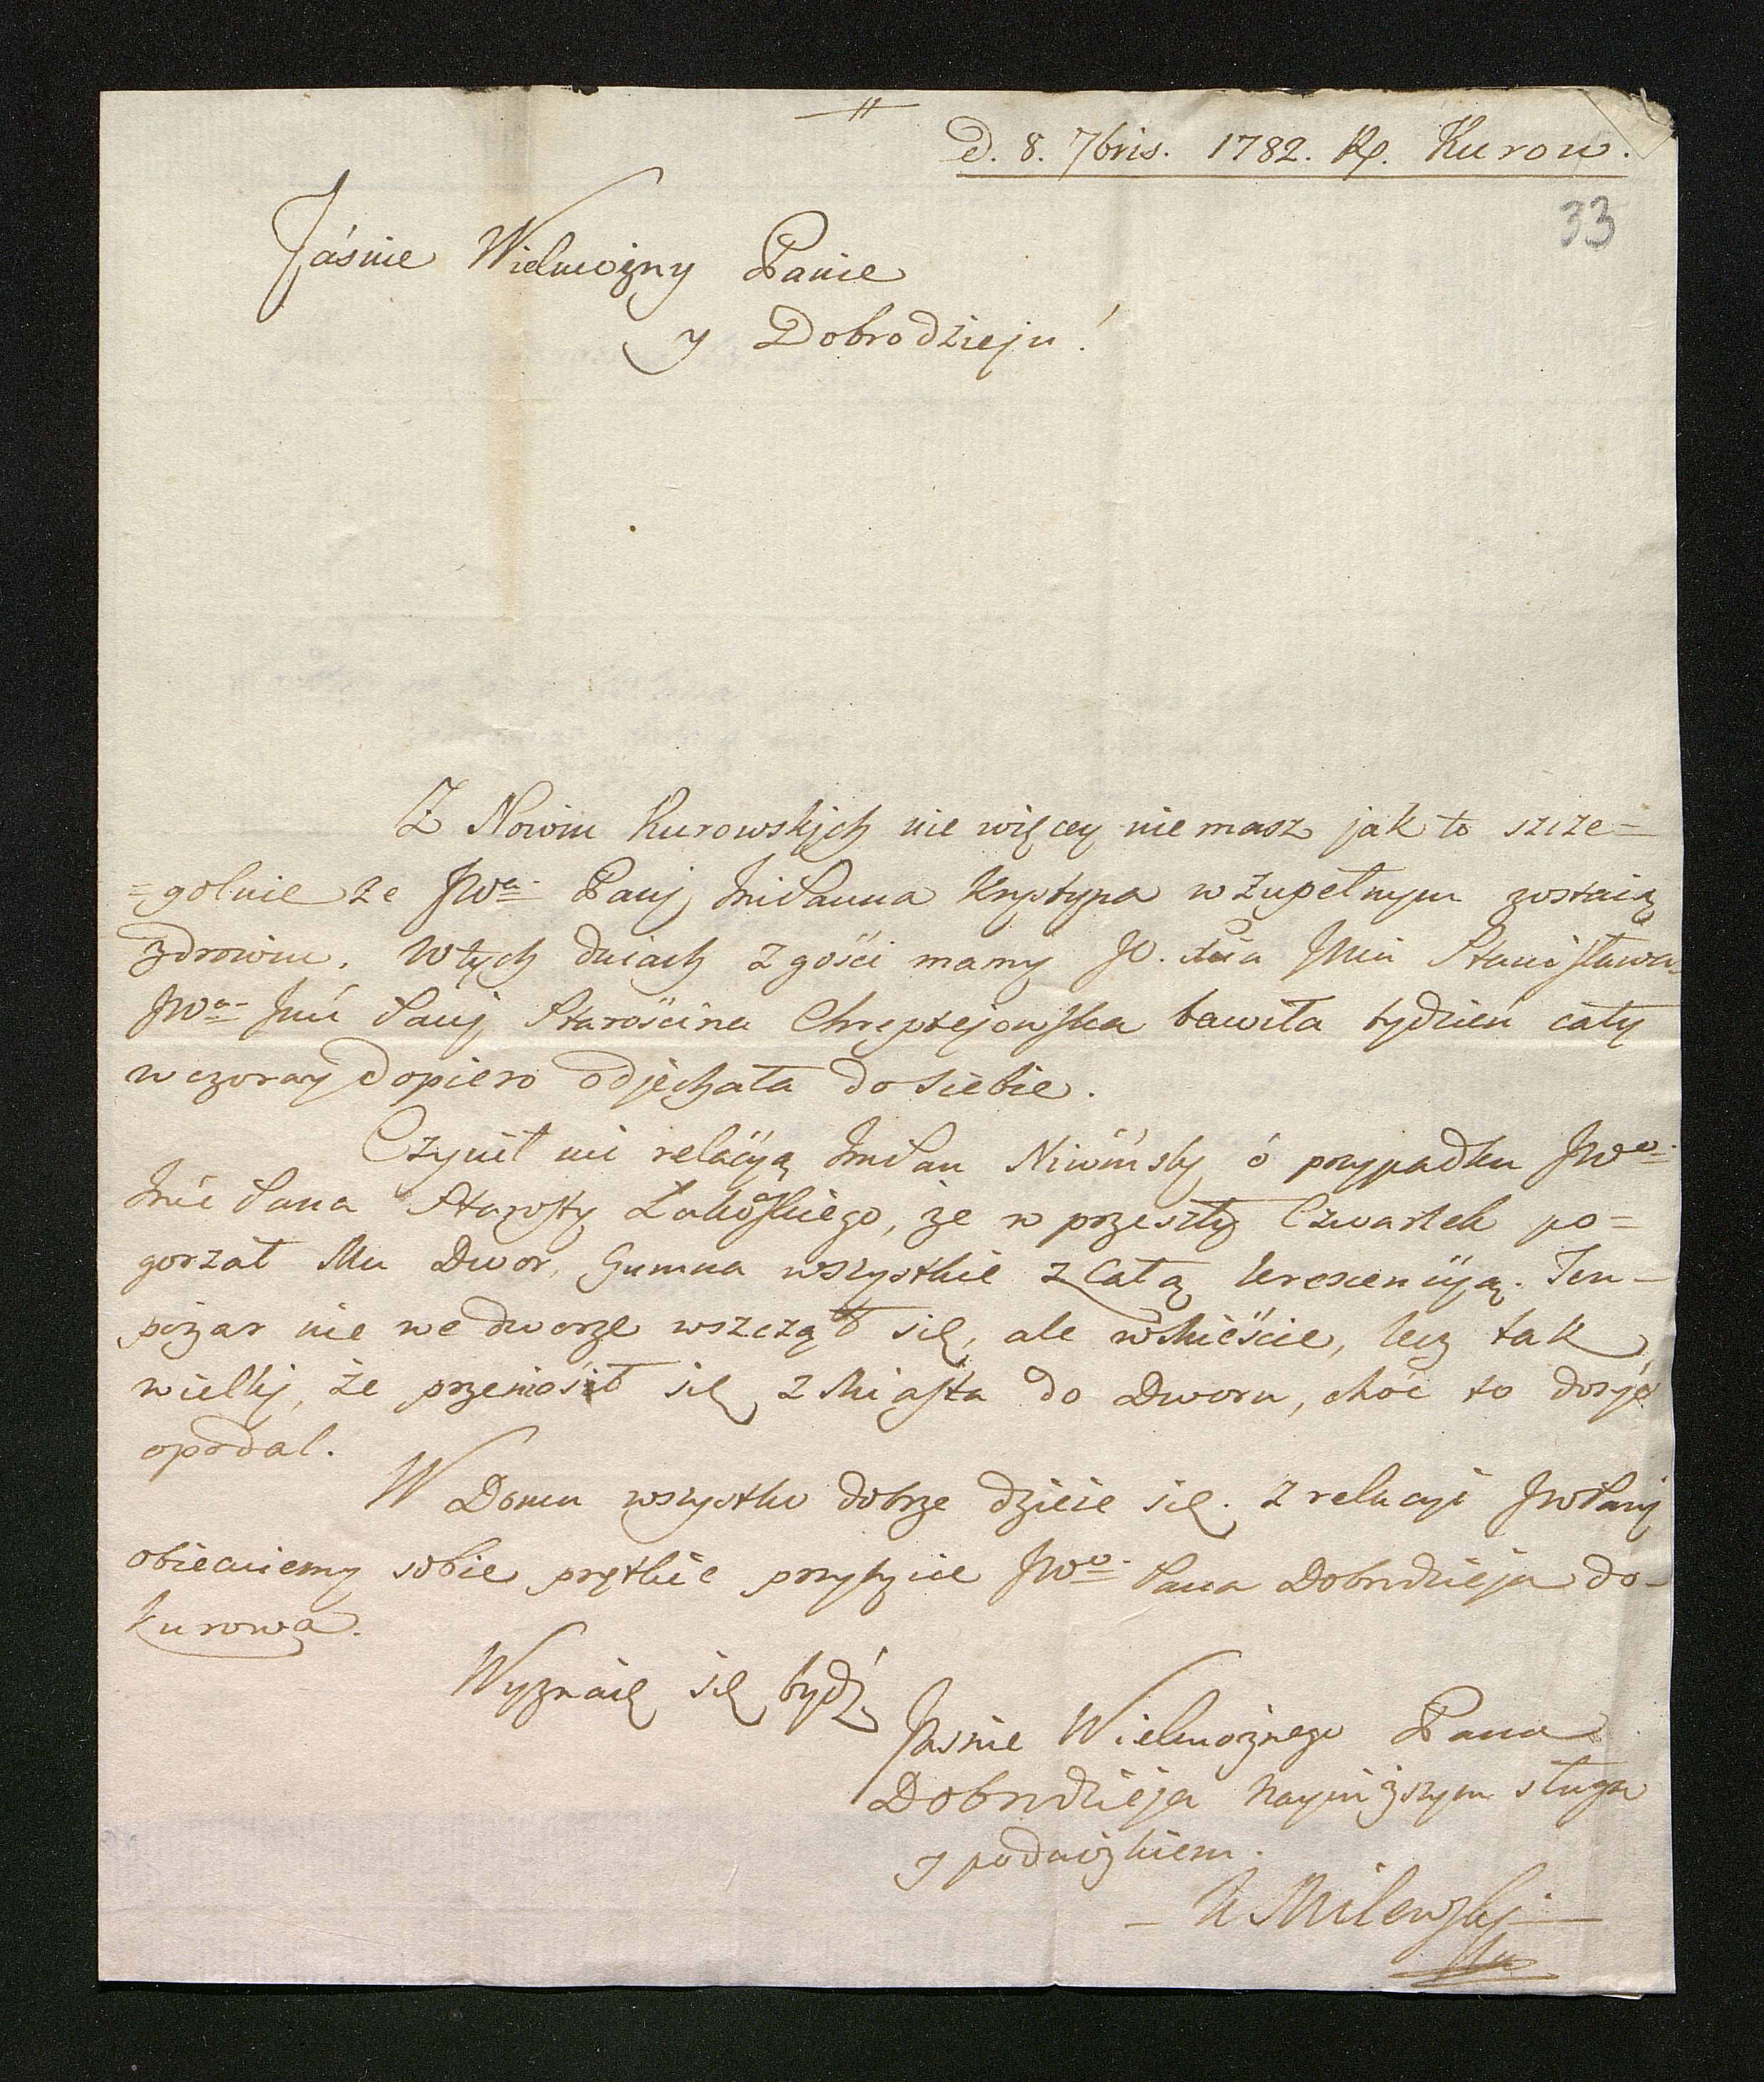 D. 8. 7bris. 1782. Kurow.
33
Jáśnie Wielmożny Panie
y Dobrodzieju!
Z Nowin Kurowskich nic więcey nie masz jak to szcze=
=golnie że JWa Pani ImPanna Krystyna w zupełnym zostaią
zdrowiu. W tych dniach z gości mamy Jmci Stanisława
JWa Pani Starościna Chreptejowska bawiła tydzień cały
wczoray dopiero odjechała do siebie.
Czynił mi relácyą ImPan Niwiński ó przypadku JWo
Pana Starosty że w przeszły Czwartek po=
gorzał Mu Dwor, Gumna wszystkie z Całą krescencyą. Ten-
pożar nie we dworze wszczął się, ale w Mieście, lecz tak
wielki, że przeniósł się z Miasta do Dworu, choć to dosyć
opodal.
W Domu wszystko dobrze dzieie się. Z relacyi JWPani
obiecuiemy sobie prętkie przybycie JWo Pana Dobrodzieja do-
Kurowa.
Wyznaię się bydź
Jaśnie Wielmożnego Pana
Dobrodzieja nayniższym sługą
y podnóżkiem.
Milewski